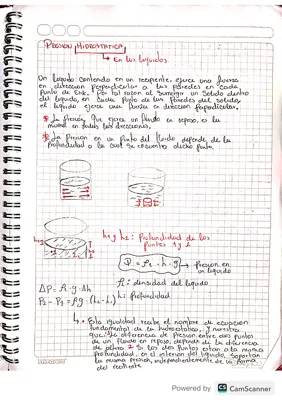 PRESION HIDROSTATICA
→ En los liquidos
Un liquido contenido en un recipiente, ejerce una fuerza
en direccion perpendicular a las paredes en cada
punto de este. Por tal razon al sumergir un solido dentro
del liquido, en cada punto de las paredes del solido,
el liquido ejerce una fuerza en direccion perpendicular.
* La presion que ejerce un fluido en reposo, es la
misma en todas las direcciones,
* La presion en un punto del fluido depende de la
profundidad a la cual se encuentra dicho punto
h1 y h2: profundidad de los
puntos 1 y 2
P = ρL · h · g → presion en
un liquido
: densidad del liquido
h: profundidad
ΔP = · g · Δh
P2 - P1 = g · (h2 - h1)
Esta igualdad recibe el nombre de ecuacion
fundamental de la hidrostatica, y muestra
que la diferencia de presion entre dos puntos
de un fluido en reposo, depende de la diferencia
de Si los dos puntos estan a la misma
profundidad, en el interior del liquido, soportan
la misma presion, independientemente de la forma
del recipiente
Powered by CS CamScanner